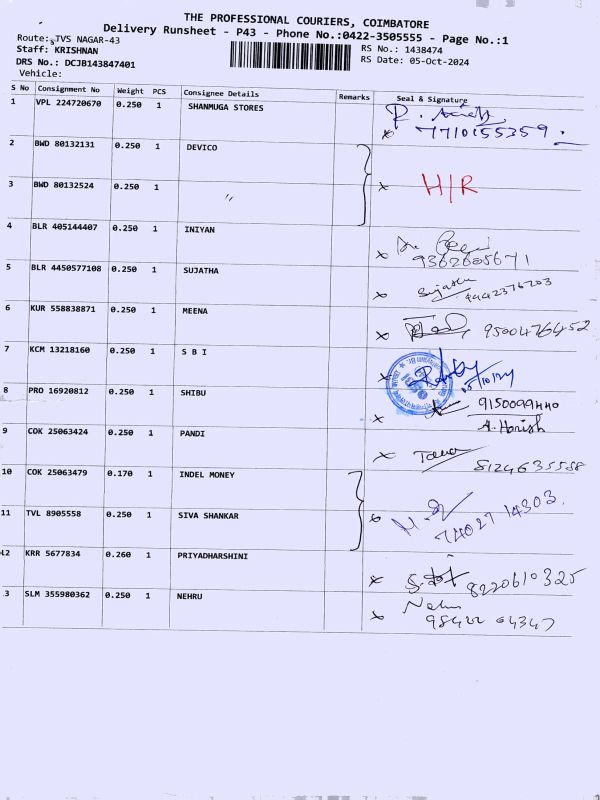 THE PROFESSIONAL COURIERS, COIMBATORE
Delivery Runsheet - P43 - Phone No.:0422-3505555 - Page No.:1
Route: TVS NAGAR-43
Staff: KRISHNAN
RS No.: 1438474
DRS No.: DCJB143847401
RS Date: 05-Oct-2024
Vehicle:
S No Consignment No Weight PCS Consignee Details Remarks Seal & Signature
1 VPL 224720670 0.250 1 SHANMUGA STORES
7710155359
2 BWD 80132131 0.250 1 DEVICO
3 BWD 80132524 0.250 1 " H/R
4 BLR 405144407 0.250 1 INIYAN
9362605671
5 BLR 4450577108 0.250 1 SUJATHA Sujatha 9442376203
6 KUR 558838871 0.250 1 MEENA 9500476452
7 KCM 13218160 0.250 1 S B I
05/10/24
8 PRO 16920812 0.250 1 SHIBU 9150099440
A. Harish
9 COK 25063424 0.250 1 PANDI
8124635558
10 COK 25063479 0.170 1 INDEL MONEY
11 TVL 8905558 0.250 1 SIVA SHANKAR 74027 14303.
12 KRR 5677834 0.260 1 PRIYADHARSHINI
8220610325
13 SLM 355980362 0.250 1 NEHRU Nehru
98422 04347